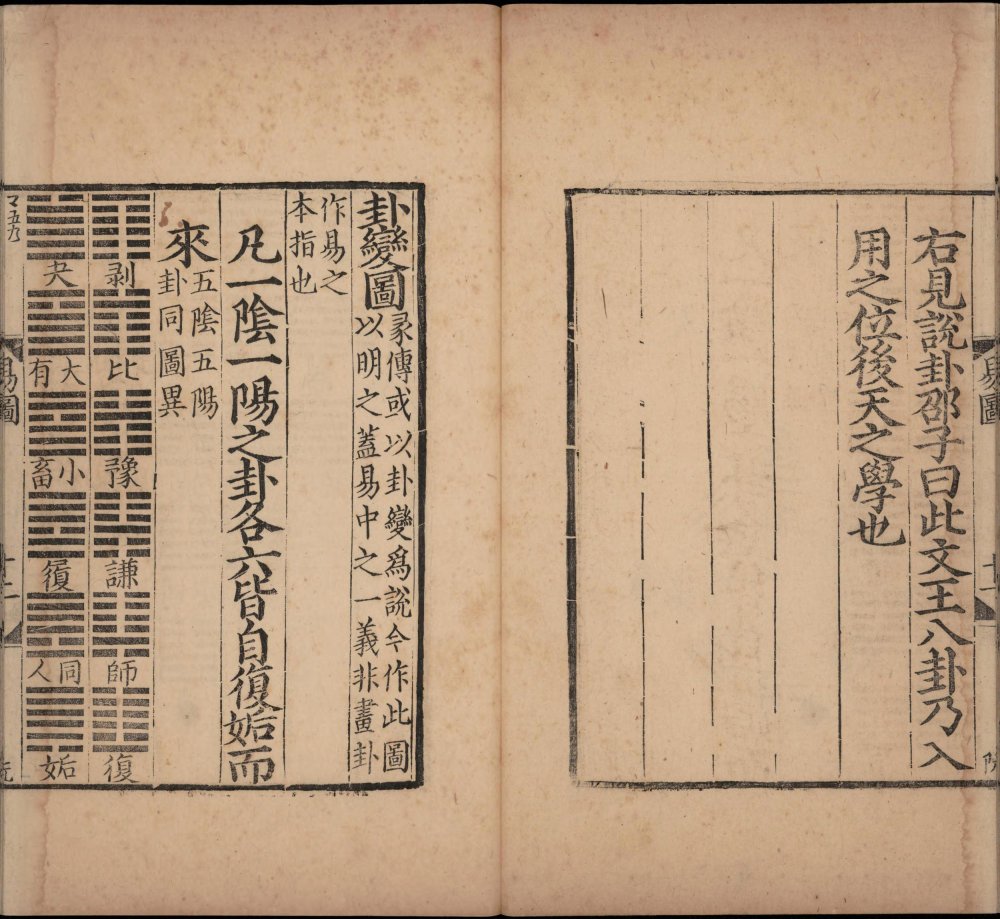 右見說卦邵子曰此文王八卦乃入
用之位後天之學也
易圖
卦變圖
彖傳或以卦變爲說今作此圖
以明之蓋易中之一義非畫卦
作易之
本指也
凡一陰一陽之卦各六皆自復姤而
來
五陰五陽
卦同圖異
剥
比
豫
謙
師
復
夬
大有
小畜
履
同人
姤
易圖
十二